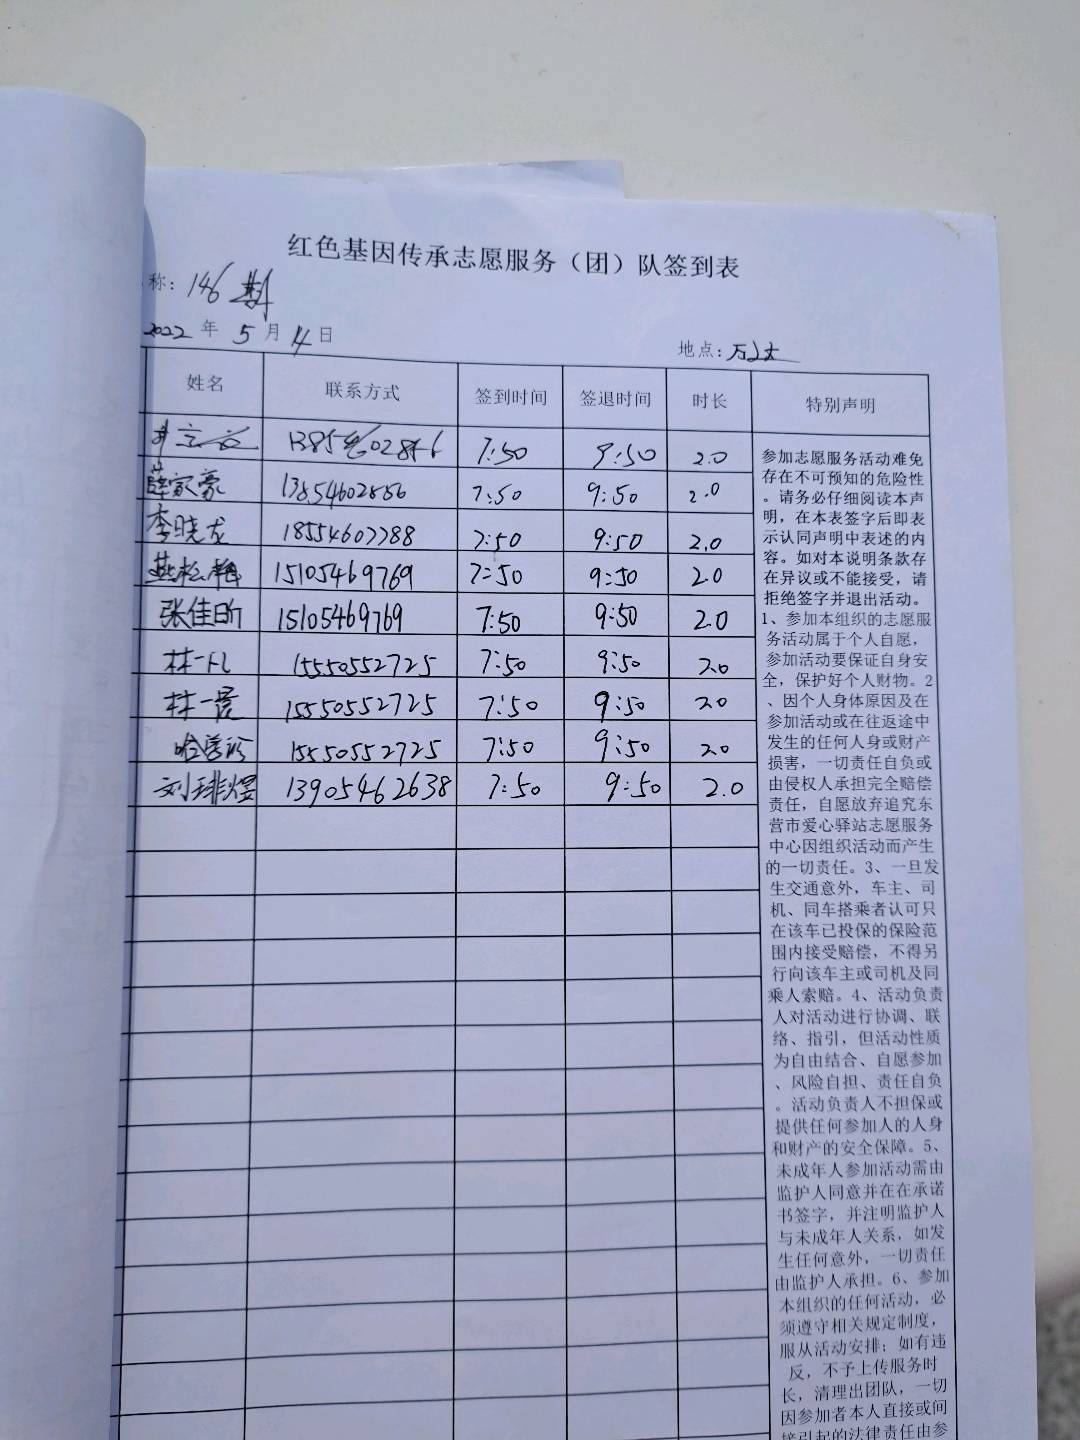 红色基因传承志愿服务（团）队签到表
称：146期
2022年5月4日
地点：万达
姓名 联系方式 签到时间 签退时间 时长 特别声明
7:50 9:50 2.0
薛家豪 13854602856 7:50 9:50 2.0
李晓龙 18554607788 7:50 9:50 2.0
15105469769 7:50 9:50 2.0
张佳昕 15105469769 7:50 9:50 2.0
林一凡 15550552725 7:50 9:50 2.0
林一 15550552725 7:50 9:50 2.0
15550552725 7:50 9:50 2.0
刘琲煜 13905462638 7:50 9:50 2.0
参加志愿服务活动难免
存在不可预知的危险性
。请务必仔细阅读本声
明，在本表签字后即表
示认同声明中表述的内
容。如对本说明条款存
在异议或不能接受，请
拒绝签字并退出活动。
1、参加本组织的志愿服
务活动属于个人自愿，
参加活动要保证自身安
全，保护好个人财物。2
、因个人身体原因及在
参加活动或在往返途中
发生的任何人身或财产
损害，一切责任自负或
由侵权人承担完全赔偿
责任，自愿放弃追究东
营市爱心驿站志愿服务
中心因组织活动而产生
的一切责任。3、一旦发
生交通意外，车主、司
机、同车搭乘者认可只
在该车已投保的保险范
围内接受赔偿，不得另
行向该车主或司机及同
乘人索赔。4、活动负责
人对活动进行协调、联
络、指引，但活动性质
为自由结合、自愿参加
、风险自担、责任自负
。活动负责人不担保或
提供任何参加人的人身
和财产的安全保障。5、
未成年人参加活动需由
监护人同意并在在承诺
书签字，并注明监护人
与未成年人关系，如发
生任何意外，一切责任
由监护人承担。6、参加
本组织的任何活动，必
须遵守相关规定制度，
服从活动安排；如有违
反，不予上传服务时
长，清理出团队，一切
因参加者本人直接或间
接引起的法律责任由参